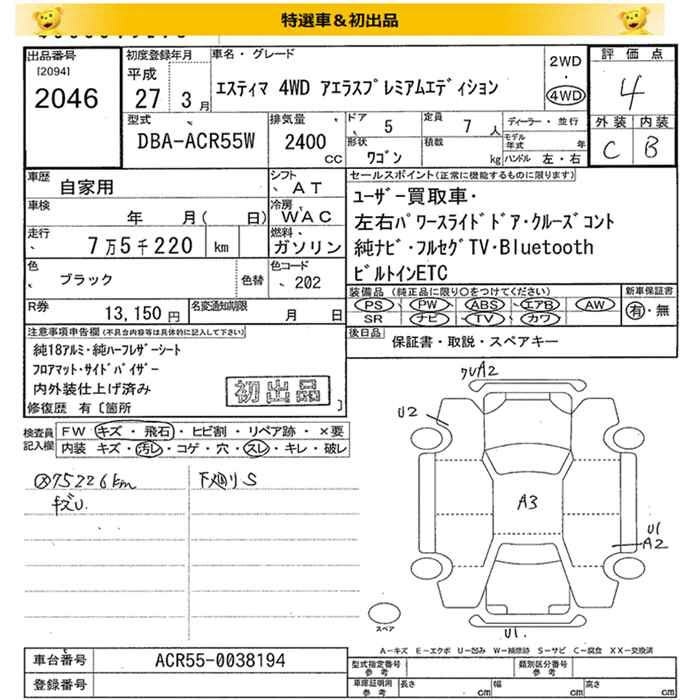 特選車＆初出品
出品番号
[2094]
2046
初度登録年月
平成
27 3月
車名・グレード
エスティマ 4WD アエラスプレミアムエディション
2WD
・
4WD
評価点
4
外装 内装
C B
型式
DBA-ACR55W
排気量
2400
cc
ドア 5
定員 7 人
形状 ワゴン
積載 kg
ディーラー・並行
モデル年式 年
ハンドル 左・右
車歴
自家用
シフト
AT
車検
年 月( 日)
冷房
WAC
走行
7万5千220 km
燃料
ガソリン
色
ブラック
色替
色コード
202
R券
13,150円
名変通知期限
月 日
セールスポイント(正常に機能するものに限り)
ユーザー買取車・
左右パワースライドドア・クルーズコント
純ナビ・フルセグTV・Bluetooth
ビルトインETC
装備品(純正品に限り○をつけてください)
PS PW ABS エアB AW
SR ナビ TV カワ
新車保証書
有・無
後日品
保証書・取説・スペアキー
注意事項申告欄(不具合内容等は具体的に記入して下さい)
純18アルミ・純ハーフレザーシート
フロアマット・サイドバイザー
内外装仕上げ済み
初出品
修復歴 有〔箇所 〕
検査員
記入欄
FW キズ・飛石・ヒビ割・リペア跡・×要
内装 キズ・汚レ・コゲ・穴・スレ・キレ・破レ
75226km
キズU.
下廻りS
A2
U2
A3
U1
A2
U1.
スペア
A-キズ E-エクボ U-凹み W-補修跡 S-サビ C-腐食 XX-交換済
車台番号
ACR55-0038194
登録番号
型式指定番号
参考
類別区分番号
参考
車庫証明用
参考
長さ cm
幅 cm
高さ cm